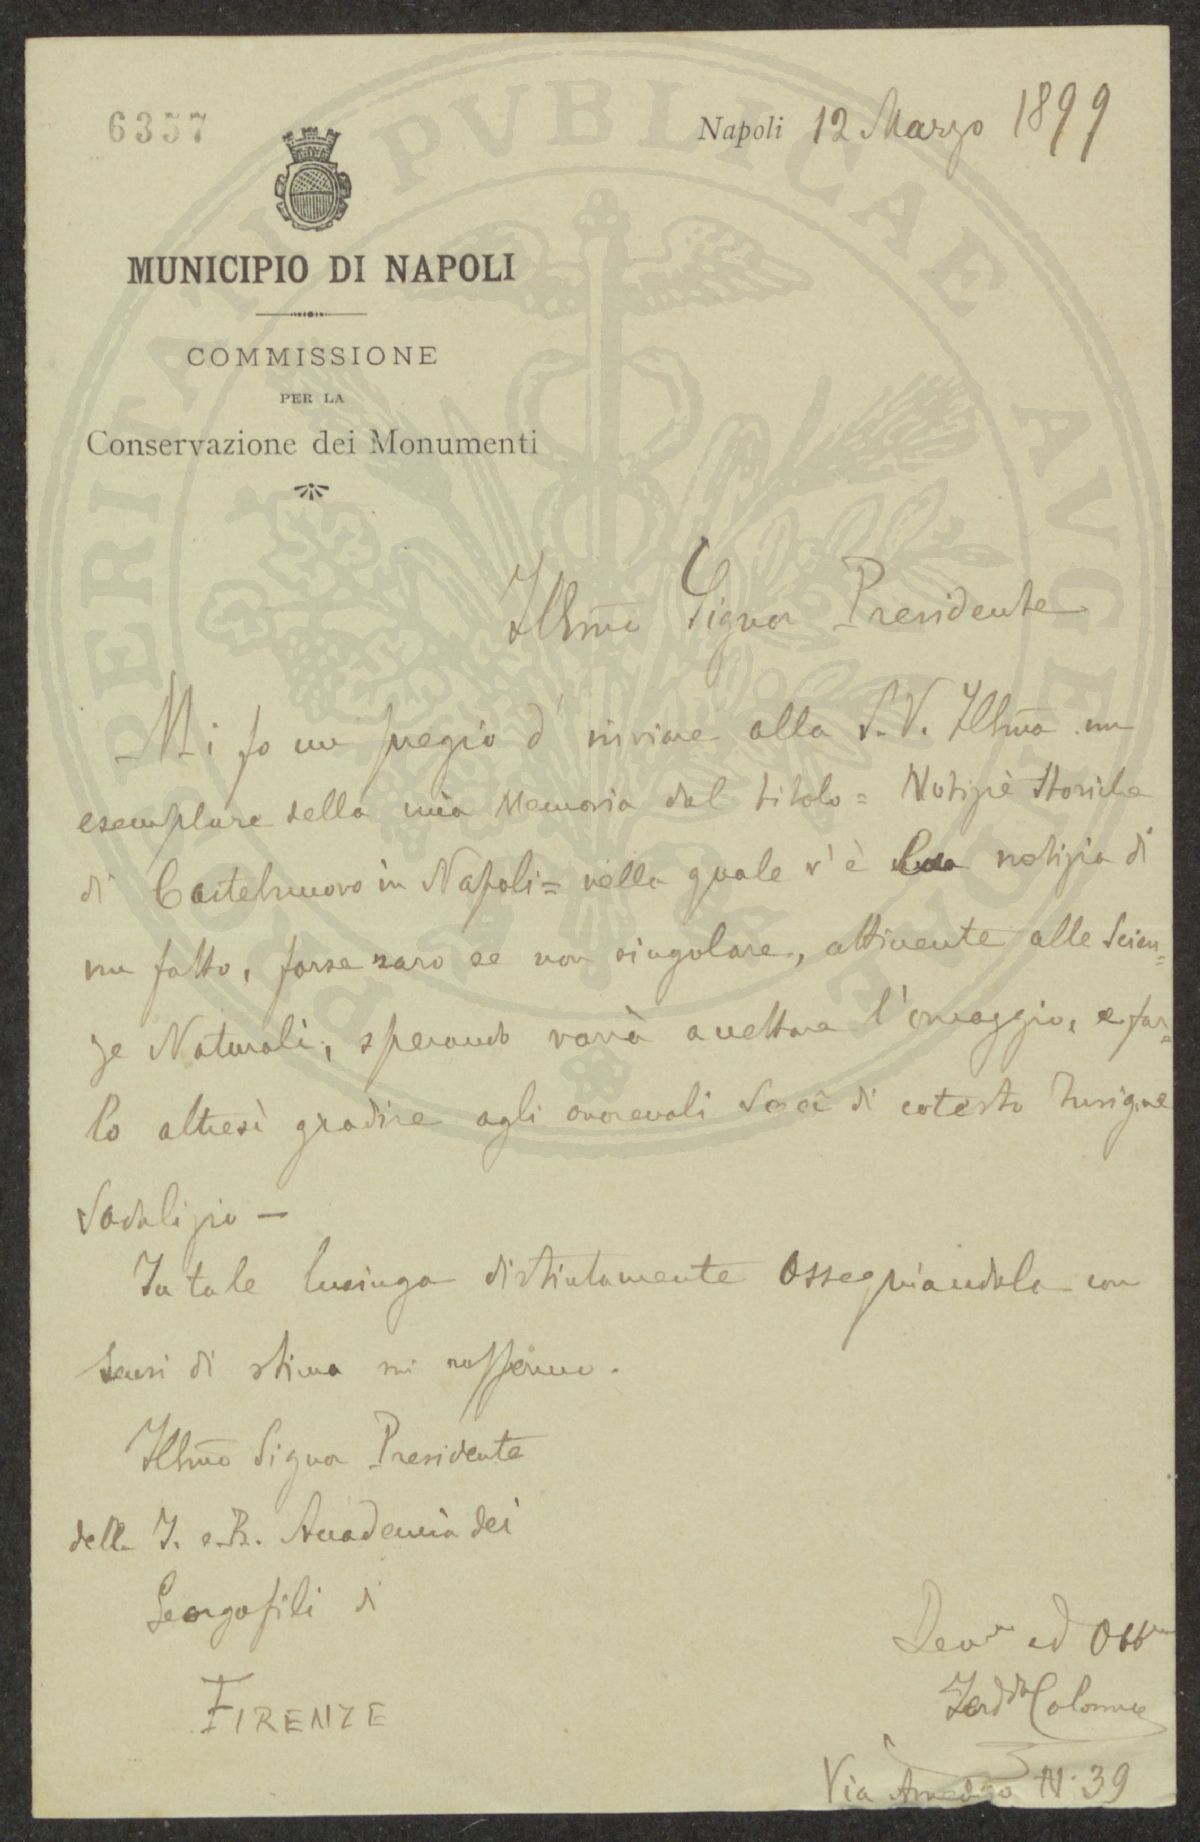 6357
Napoli 12 Marzo 1899
MUNICIPIO DI NAPOLI
COMMISSIONE
PER LA
Conservazione dei Monumenti
PROSPERITATI PVBLICAE AVGENDAE
Illmo Signor Presidente
Mi fo un pregio d'inviare alla S.V. Illma un
esemplare della mia Memoria dal titolo = Notizie Storiche
di Castelnuovo in Napoli = nella quale v'è la notizia di
un fatto, forse raro se non singolare, attinente alle Scien=
ze Naturali, sperando vorrà accettare l'omaggio, e far=
lo altresì gradire agli onorevoli Soci di cotesto Insigne
Sodalizio —
In tale lusinga distintamente Ossequiandola con
sensi di stima mi raffermo.
Illmo Signor Presidente
della I. e R. Accademia dei
Georgofili di
FIRENZE
Devmo ed Obbmo
Ferddo Colonna
Via Amedeo N. 39